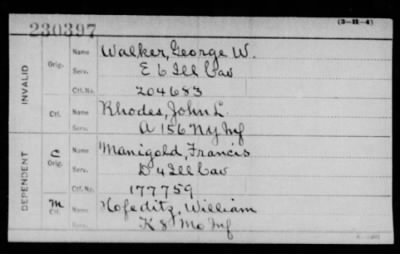 230397 (3-III-4)
INVALID
Orig. Name Walker, George W.
Serv. E 6 Ill Cav
Ctf. No. 204683
Ctf. Name Rhodes, John L.
Serv. A 156 NY Inf
DEPENDENT
C Orig. Name Manigold, Francis
Serv. D 4 Ill Cav
Ctf. No. 177759
M Ctf. Name Hofeditz, William
Serv. K 8 Mo Inf